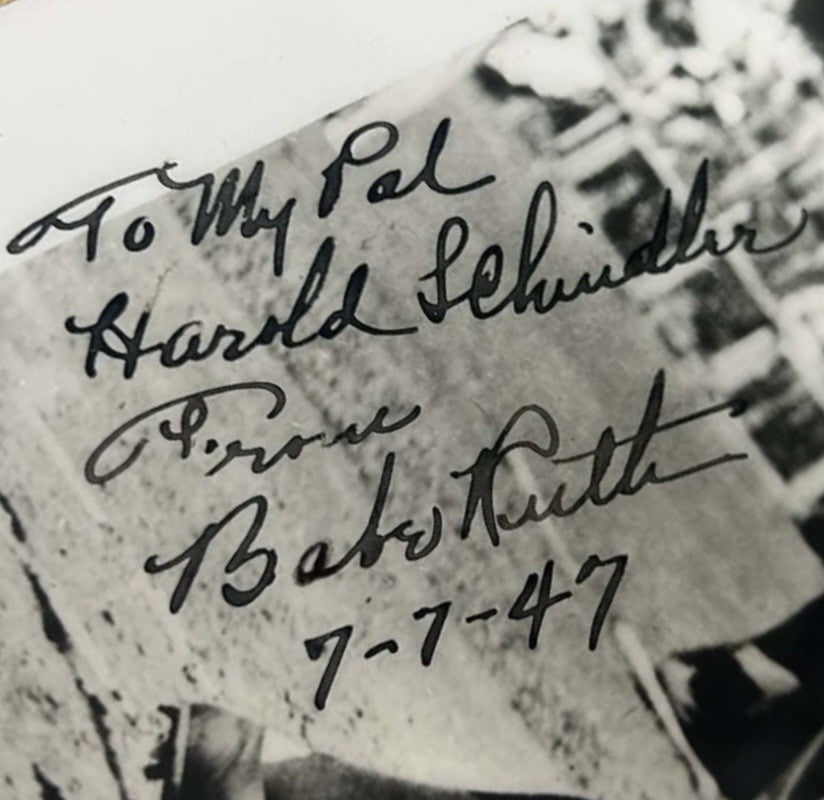 To My Pal
Harold Schindler
From
Babe Ruth
7-7-47